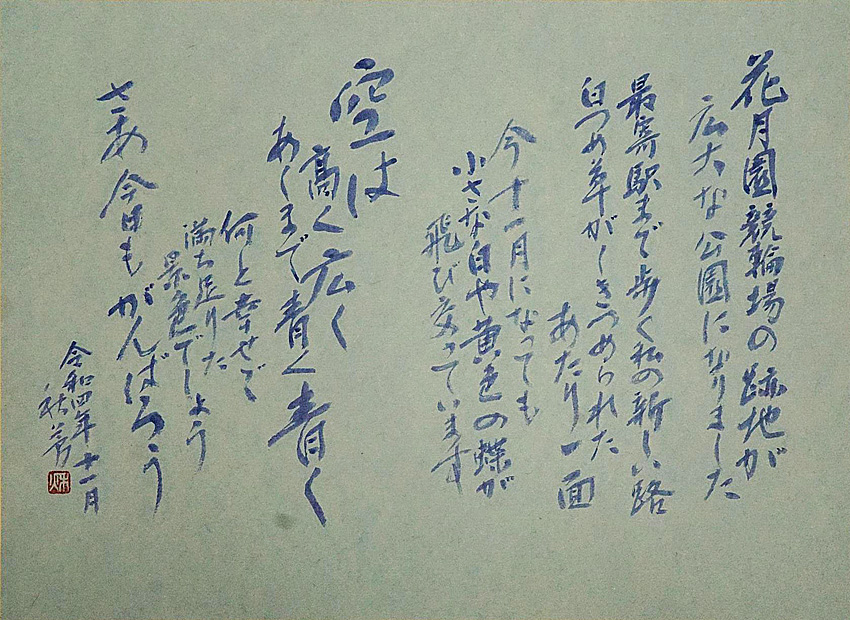 花月園競輪場の跡地が
広大な公園になりました
最寄駅まで歩く私の新しい路
白つめ草がしきつめられた
あたり一面
今十一月になっても
小さな白や黄色の蝶が
飛び交っています
空は
高く広く
あくまで青く青く
何と幸せで
満ち足りた
景色でしょう
さあ今日もがんばろう
令和四年十一月
秋